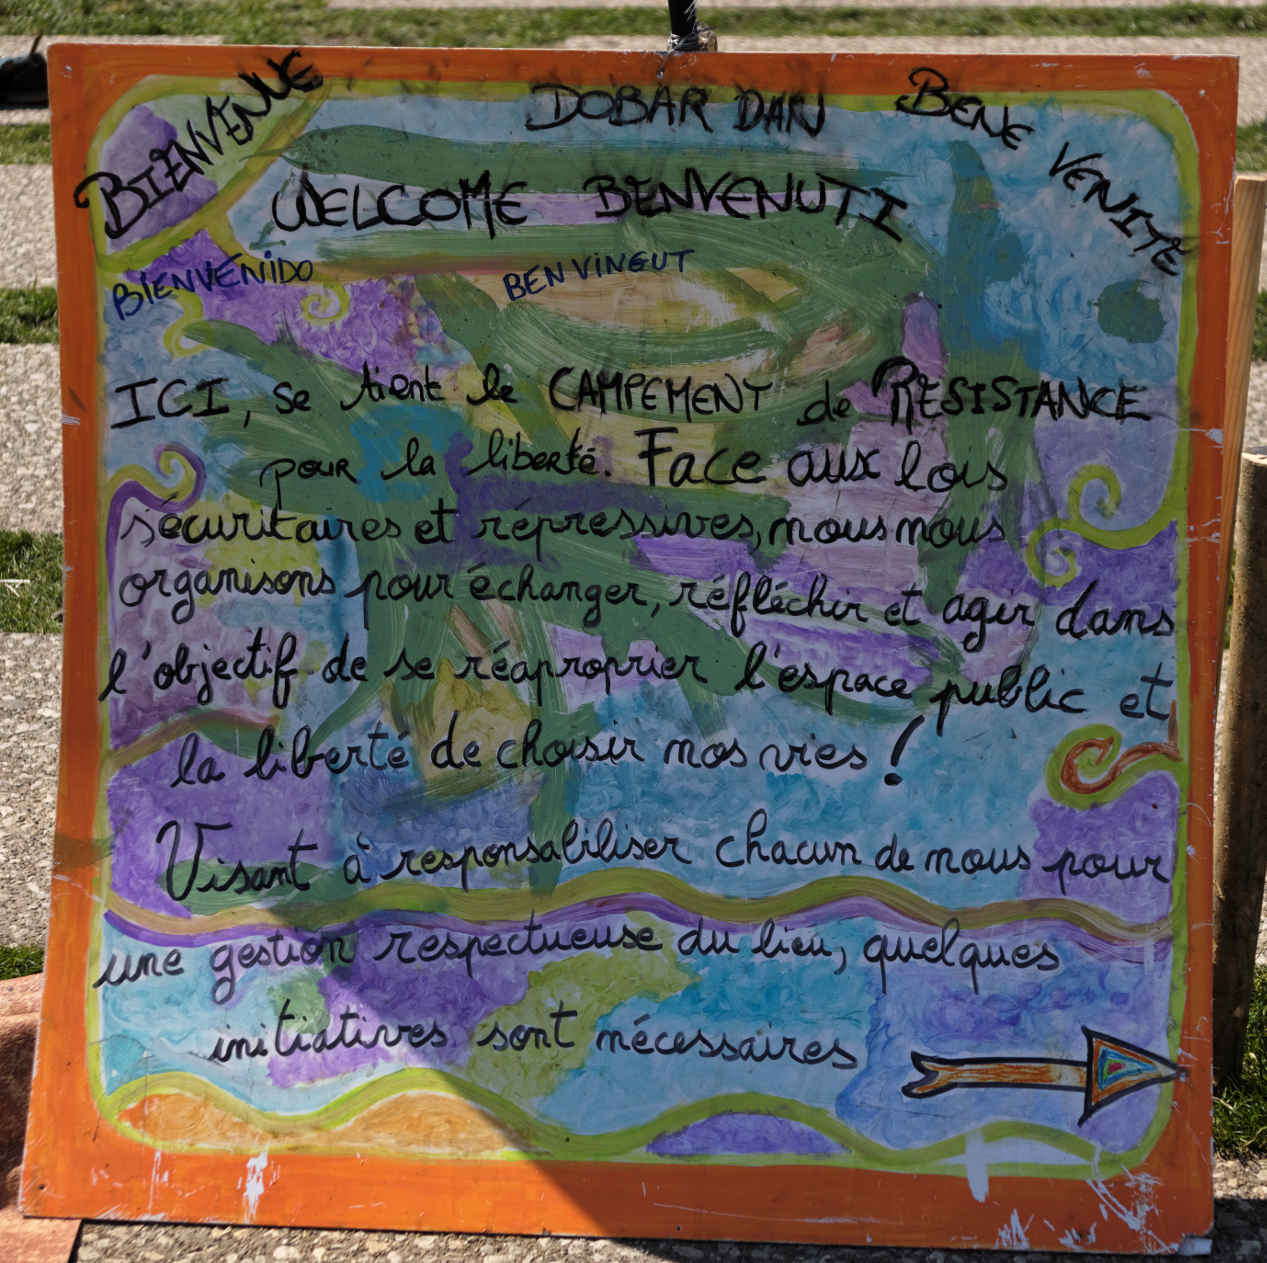 BIENVENUE
DOBAR DAN
BENE VENITE
WELCOME BENVENUTI
BIENVENIDO
BENVINGUT
ICI, se tient le CAMPEMENT de RESISTANCE
pour la liberté. Face aux lois
sécuritaires et répressives, nous nous
organisons pour échanger, réfléchir et agir dans
l'objectif de se réaproprier l'espace public et
la liberté de choisir nos vies !
Visant à responsabiliser chacun de nous pour
une gestion respectueuse du lieu, quelques
initiatives sont nécessaires